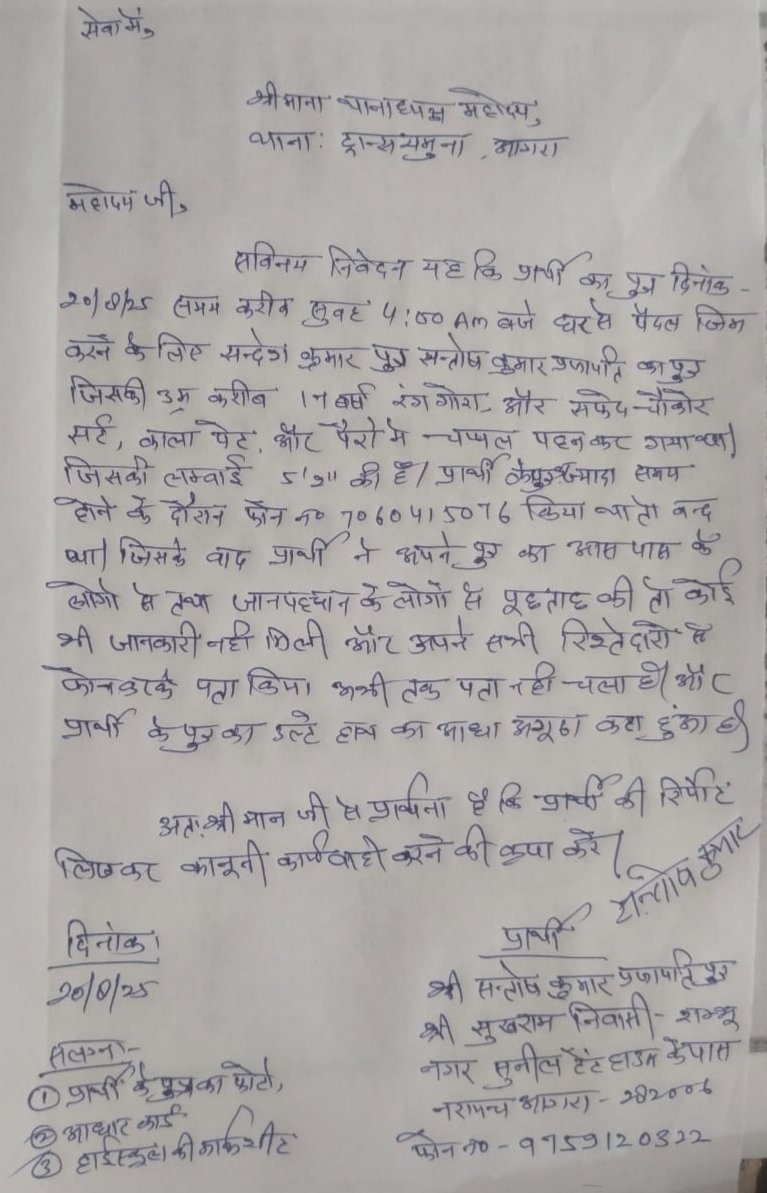 सेवा में,
श्रीमान थानाध्यक्ष महोदय,
थाना: ट्रान्स यमुना, आगरा
महोदय जी,
सविनय निवेदन यह कि प्रार्थी का पुत्र दिनांक -
20/8/25 समय करीब सुबह 4:50 Am बजे घर से पैदल जिम
करने के लिए सन्देश कुमार पुत्र सन्तोष कुमार प्रजापति का पुत्र
जिसकी उम्र करीब 17 वर्ष रंग गोरा, और सफेद चौकोर
सर्ट, काला पेंट, और पैरो मे चप्पल पहन कर गया था।
जिसकी लम्बाई 5'2" की है। प्रार्थी के पुत्र ज्यादा समय
होने के दौरान फोन no 7060415076 किया था तो बन्द
था। जिसके बाद प्रार्थी ने अपने पुत्र का आस पास के
लोगो से तथा जानपहचान के लोगों से पूछताछ की तो कोई
भी जानकारी नही मिली और अपने सभी रिश्तेदारो से
फोन करके पता किया। अभी तक पता नही चला है। और
प्रार्थी के पुत्र का उल्टे हाथ का आधा अगूठा कटा हुआ है।
अतः श्री मान जी से प्रार्थना है कि प्रार्थी की रिर्पोट
लिखकर कानूनी कार्यवाही करने की कृपा करें।
सन्तोष कुमार
दिनोक।
20/8/25
प्रार्थी
श्री सन्तोष कुमार प्रजापति पुत्र
श्री सुखराम निवासी - शम्भू
नगर सुनील टेंट हाउस के पास
आगरा - 282006
फोन no - 9759120322
सलग्न:-
① प्रार्थी के पुत्र का फोटो,
② आधार कार्ड
③ हाईस्कूल की मार्कशीट